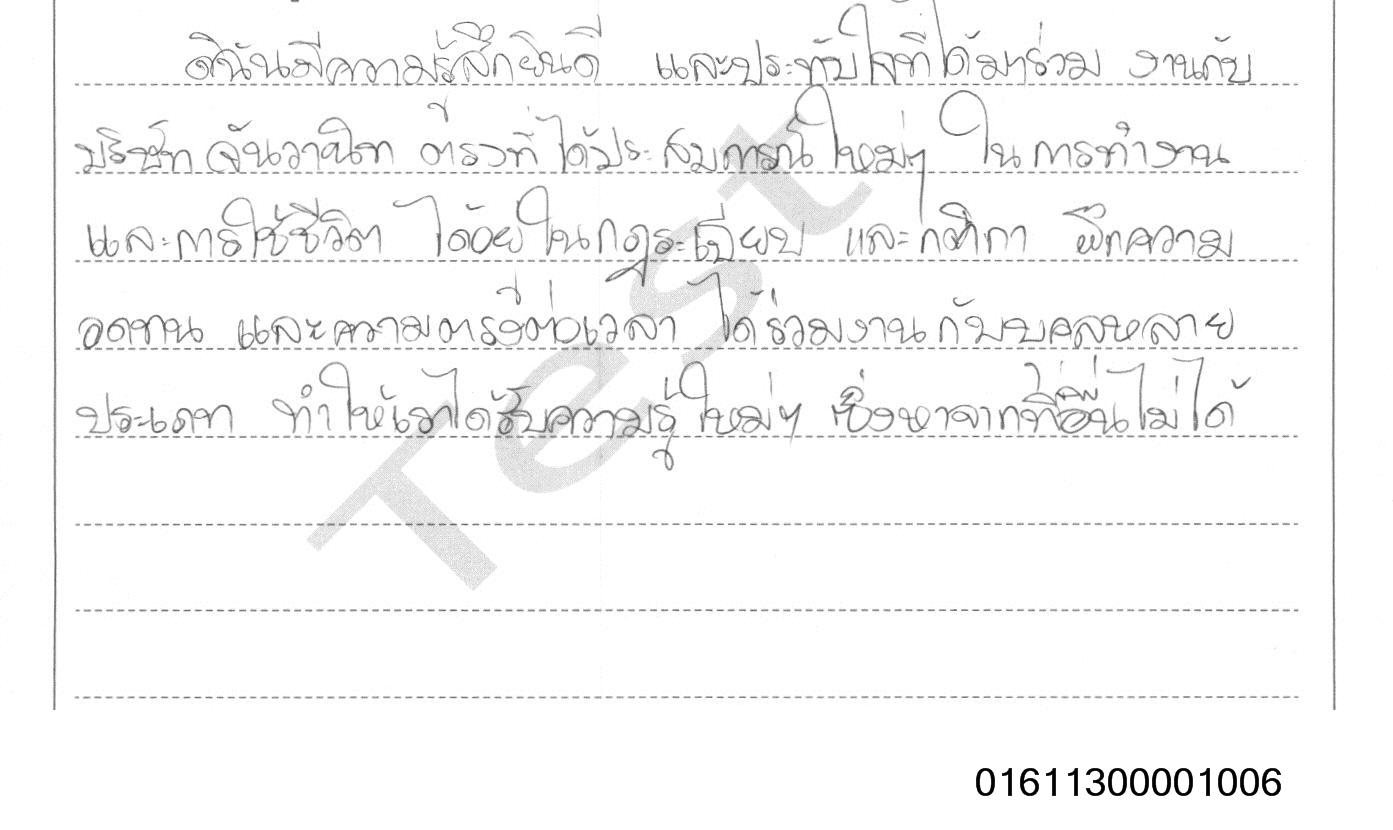 ดิฉันมีความรู้สึกยินดี และประทับใจที่ได้มาร่วม งานกับ
บริษัท จันวานิท ตรงที่ได้ประสบการณ์ใหม่ๆ ในการทำงาน
และการใช้ชีวิต ได้อยู่ในกฎระเบียบ และกติกา ฝึกความ
อดทน และความตรงต่อเวลา ได้ร่วมงานกับบุคลหลาย
ประเภท ทำให้เราได้รับความรู้ใหม่ๆ ซึ่งหาจากที่อื่นไม่ได้
Test
01611300001006